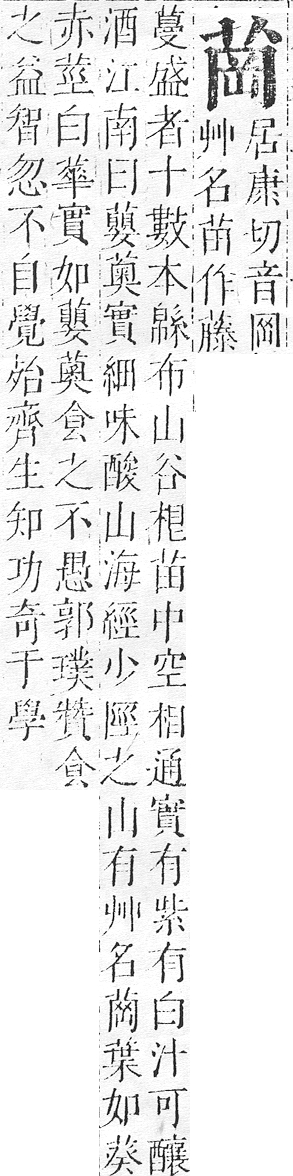 䒷
居康切音岡
艸名䒷作藤
蔓盛者十數本緜布山谷䒷中空相通實有紫有白汁可釀
酒江南曰蘡薁實細味酸山海經少陘之山有艸名䒷葉如葵
赤莖白蕐實如蘡薁食之不愚郭璞贊食
之益智忽不自覺殆齊生知功奇于學